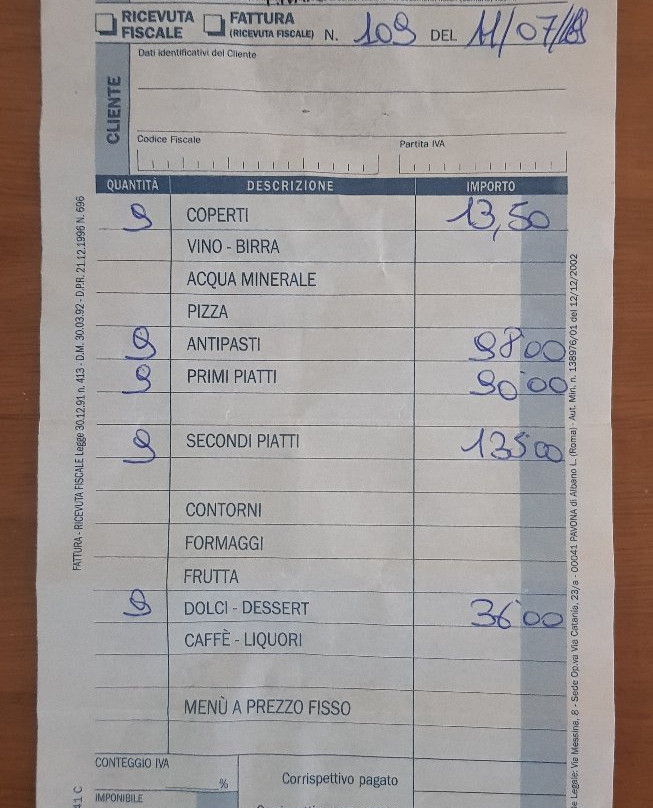 RICEVUTA FISCALE
FATTURA (RICEVUTA FISCALE) N. 109 DEL 11/07/
Dati identificativi del Cliente
CLIENTE
Codice Fiscale Partita IVA
QUANTITÀ DESCRIZIONE IMPORTO
9 COPERTI 13,50
VINO - BIRRA
ACQUA MINERALE
PIZZA
9 ANTIPASTI 98 00
9 PRIMI PIATTI 90 00
9 SECONDI PIATTI 135 00
CONTORNI
FORMAGGI
FRUTTA
9 DOLCI - DESSERT 36 00
CAFFÈ - LIQUORI
MENÙ A PREZZO FISSO
CONTEGGIO IVA
% Corrispettivo pagato
IMPONIBILE
FATTURA - RICEVUTA FISCALE Legge 30.12.91 n. 413 - D.M. 30.03.92 - D.P.R. 21.12.1996 N. 696
41 C
Legale: Via Messina, 8 - Sede Op.va Via Catania, 23/a - 00041 PAVONA di Albano L. (Roma) - Aut. Min. n. 138976/01 del 12/12/2002